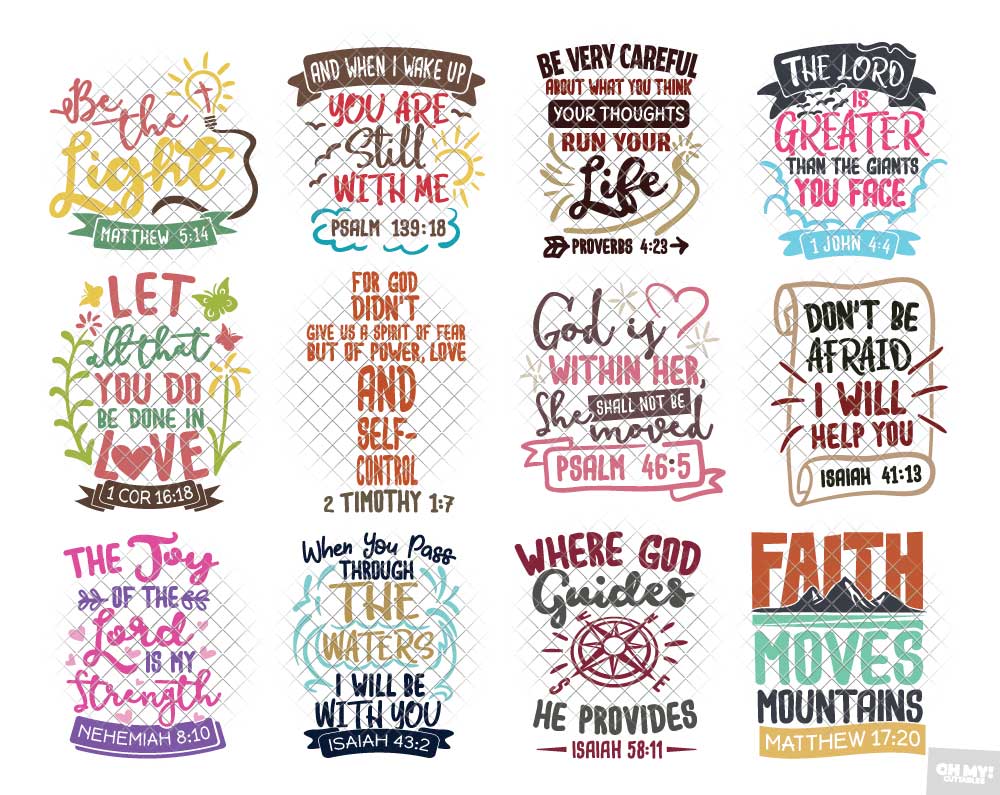 Be
the
Light
MATTHEW 5:14
AND WHEN I WAKE UP
YOU ARE
Still
WITH ME
PSALM 139:18
BE VERY CAREFUL
ABOUT WHAT YOU THINK
YOUR THOUGHTS
RUN YOUR
Life
PROVERBS 4:23
THE LORD
IS
GREATER
THAN THE GIANTS
YOU FACE
1 JOHN 4:4
LET
all that
YOU DO
BE DONE IN
LOVE
1 COR 16:18
FOR GOD
DIDN'T
GIVE US A SPIRIT OF FEAR
BUT OF POWER, LOVE
AND
SELF-
CONTROL
2 TIMOTHY 1:7
God is
WITHIN HER,
She SHALL NOT BE
moved
PSALM 46:5
DON'T BE
AFRAID
I WILL
HELP YOU
ISAIAH 41:13
THE Joy
OF THE
Lord
IS MY
Strength
NEHEMIAH 8:10
When You Pass
THROUGH
THE
WATERS
I WILL BE
WITH YOU
ISAIAH 43:2
WHERE GOD
Guides
N E
S E
HE PROVIDES
ISAIAH 58:11
FAITH
MOVES
MOUNTAINS
MATTHEW 17:20
OH MY!
CUTTABLES